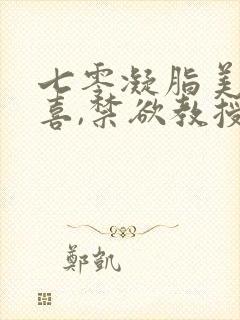 七零凝脂美
喜,禁欲教授
鄭凱